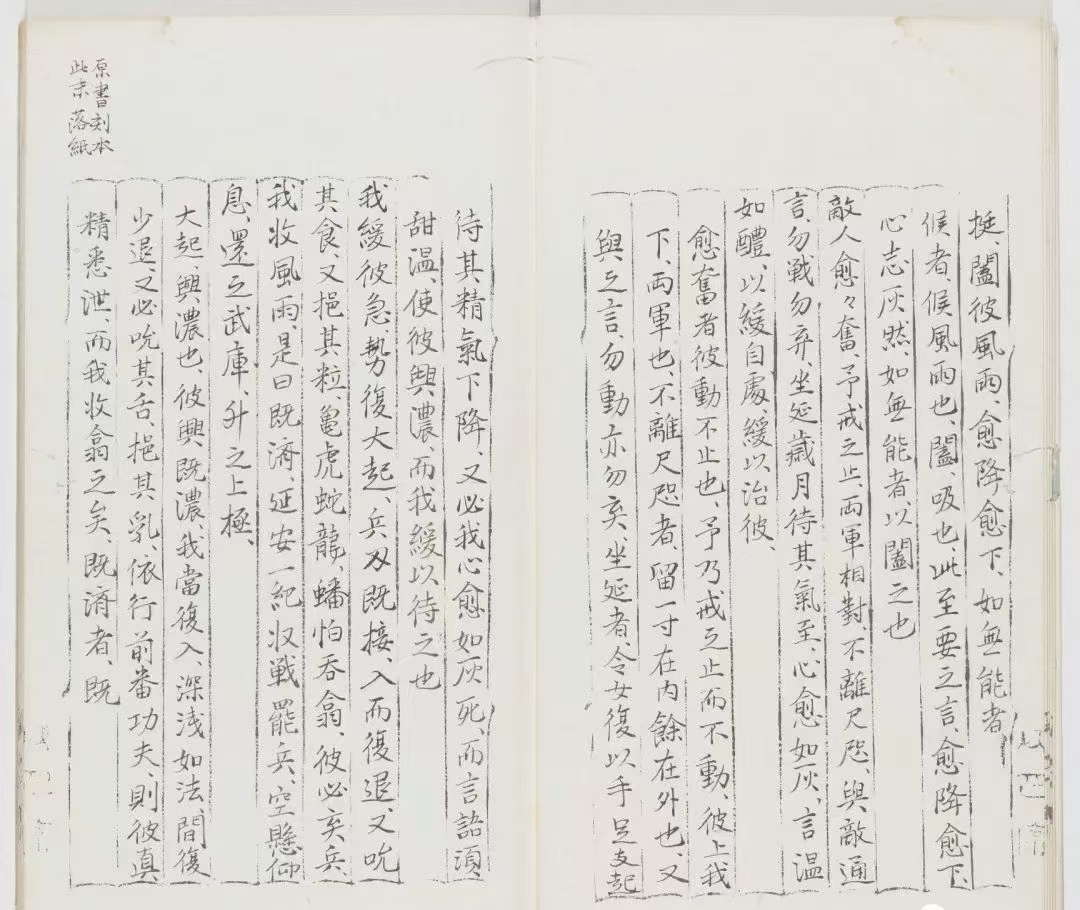 挺、闔彼風雨、愈降愈下、如無能者、
候者、候風雨也、闔、吸也、此至要之言、愈降愈下、
心志灰然、如無能者、以闔之也
敵人愈々奮、予戒之止、両軍相對、不離尺咫、與敵通
言、勿戦勿弃、坐延歲月、待其氣至、心愈如灰、言温
如醴、以緩自處、緩以治彼、
愈奮者彼動不止也、予乃戒之止而不動、彼上我
下、両軍也、不離尺咫者、留一寸在内餘在外也、又
與之言、勿動亦勿弃、坐延者、令女復以手足支起
待其精氣下降、又必我心愈如灰死、而言語須
甜温、使彼興濃、而我緩以待之也
我緩彼急、勢復大起、兵刃既接、入而復退、又吮
其食、又挹其粒、龜虎蛇龍、蟠怕吞翕、彼必弃兵
我收風雨、是曰既済、延安一紀、収戦罷兵、空懸仰
息、還之武庫、升之上極、
大起、興濃也、彼興既濃、我當復入、深浅如法、間復
少退、又必吮其舌、挹其乳、依行前番功夫、則彼真
精悉泄、而我收翕之矣、既済者、既
原書刻本
此末落紙